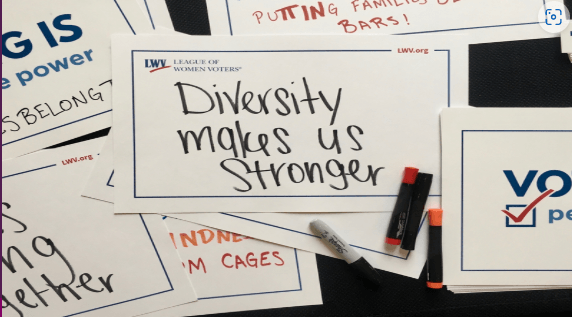 PUTTING FAMILIES
BARS!
G IS
power
SBELONG
LWV.org
LWV LEAGUE OF
WOMEN VOTERS®
Diversity
makes us
Stronger
LWV.org
gether
INDNE
M CAGES
VO
pe